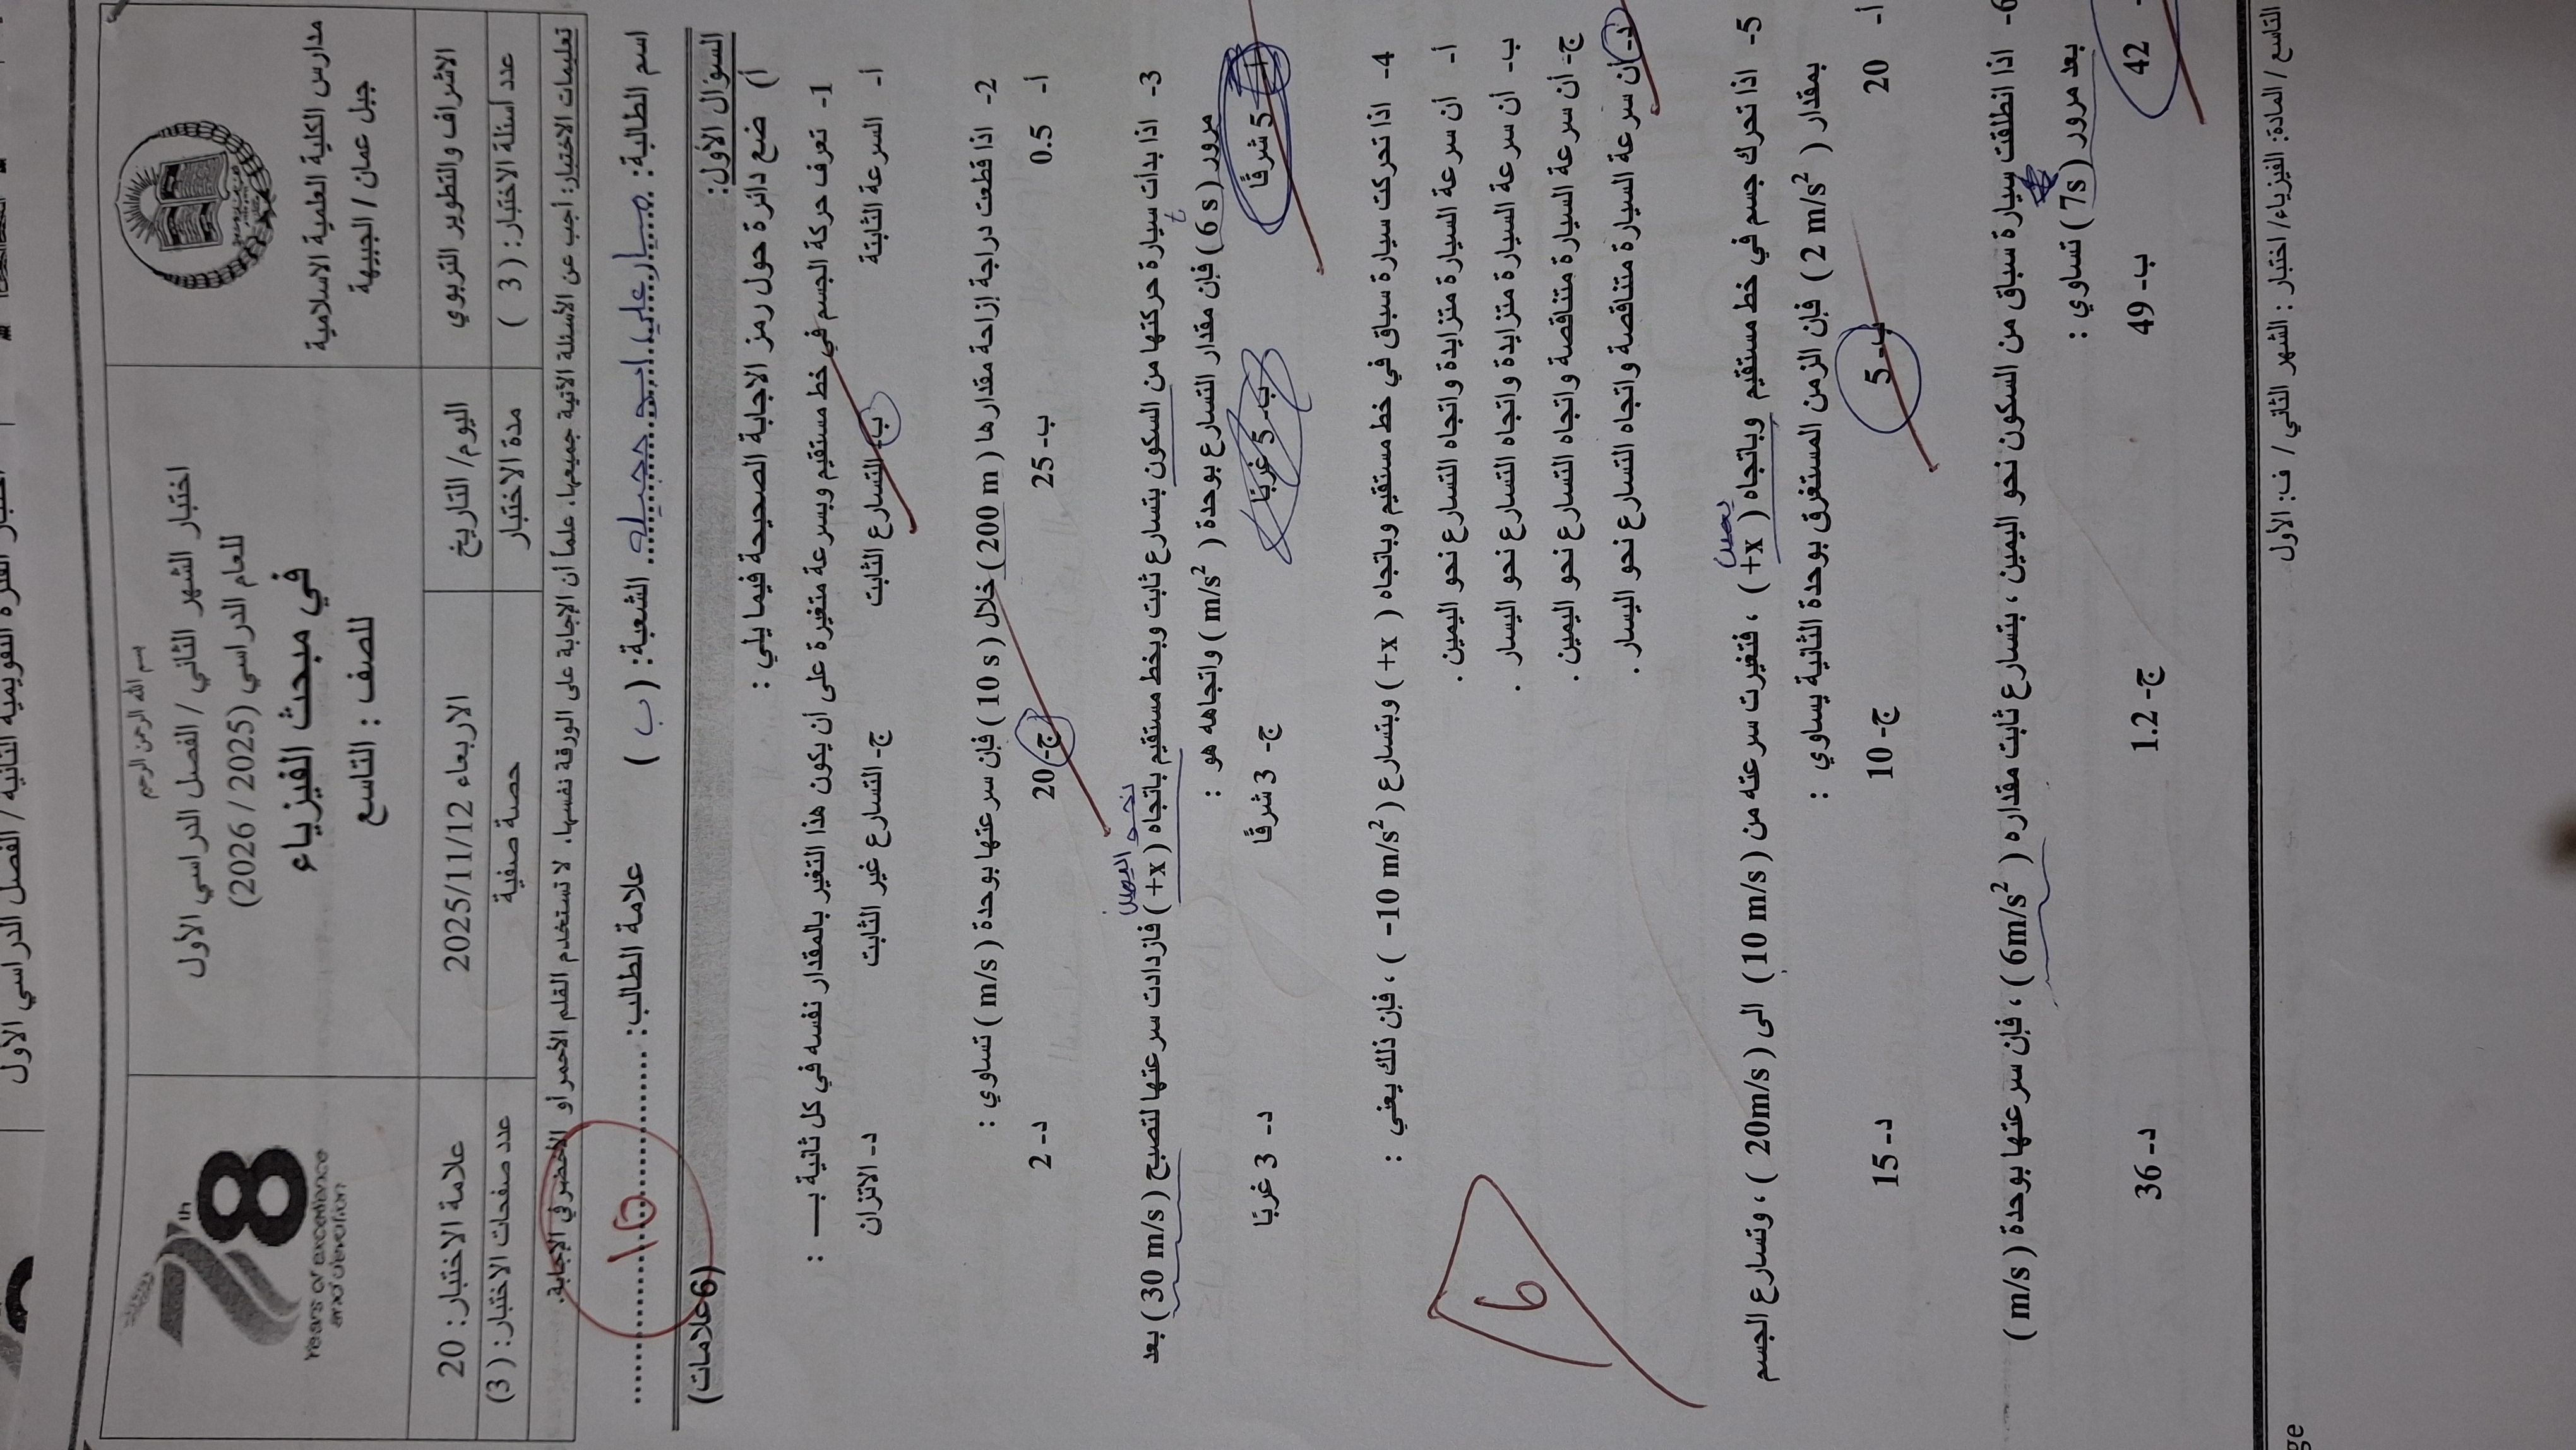 بسم الله الرحمن الرحيم
مدارس الكلية العلمية الاسلامية
جبل عمان / الجبيهة
اختبار الشهر الثاني / الفصل الدراسي الأول
للعام الدراسي (2025 / 2026)
في مبحث الفيزياء
للصف : التاسع
78th
Years of excellence
and devotion
الاشراف والتطوير التربوي
اليوم/ التاريخ
الاربعاء 2025/11/12
علامة الاختبار: 20
عدد أسئلة الاختبار: ( 3 )
مدة الاختبار
حصة صفية
عدد صفحات الاختبار: ( 3)
تعليمات الاختبار: أجب عن الأسئلة الآتية جميعها، علماً أن الإجابة على الورقة نفسها، لا تستخدم القلم الأحمر أو الأخضر في الإجابة.
اسم الطالبة: الشعبة: ( ب ) علامة الطالب: 16
السؤال الأول: (6علامات)
أ) ضع دائرة حول رمز الاجابة الصحيحة فيما يلي :
1- تعرف حركة الجسم في خط مستقيم وبسرعة متغيرة على أن يكون هذا التغير بالمقدار نفسه في كل ثانية بـ :
أ- السرعة الثابتة ب- التسارع الثابت ج- التسارع غير الثابت د- الاتزان
2- اذا قطعت دراجة إزاحة مقدارها ( 200 m) خلال ( 10 s ) فإن سرعتها بوحدة ( m/s ) تساوي :
أ- 0.5 ب- 25 ج- 20 د- 2
نحو اليمين
3- اذا بدأت سيارة حركتها من السكون بتسارع ثابت وبخط مستقيم باتجاه ( +x ) فازدادت سرعتها لتصبح ( 30 m/s) بعد
مرور ( 6 s ) فإن مقدار التسارع بوحدة ( m/s² ) واتجاهه هو :
t
أ- 5 شرقًا ب- 5 غربًا ج- 3 شرقًا د- 3 غربًا
4- اذا تحركت سيارة سباق في خط مستقيم وباتجاه ( +x ) وبتسارع ( -10 m/s² ) ، فإن ذلك يعني :
أ- أن سرعة السيارة متزايدة واتجاه التسارع نحو اليمين .
ب- أن سرعة السيارة متزايدة واتجاه التسارع نحو اليسار .
ج- أن سرعة السيارة متناقصة واتجاه التسارع نحو اليمين .
د- أن سرعة السيارة متناقصة واتجاه التسارع نحو اليسار .
6
يمين
5- اذا تحرك جسم في خط مستقيم وباتجاه ( +x ) ، فتغيرت سرعته من ( 10 m/s) الى ( 20m/s ) ، وتسارع الجسم
بمقدار ( 2 m/s² ) فإن الزمن المستغرق بوحدة الثانية يساوي :
أ- 20 ب- 5 ج- 10 د- 15
6- اذا انطلقت سيارة سباق من السكون نحو اليمين ، بتسارع ثابت مقداره ( 6m/s² ) ، فإن سرعتها بوحدة ( m/s )
بعد مرور ( 7s ) تساوي :
42 ب- 49 ج- 1.2 د- 36
التاسع / المادة: الفيزياء/ اختبار : الشهر الثاني / ف: الأول